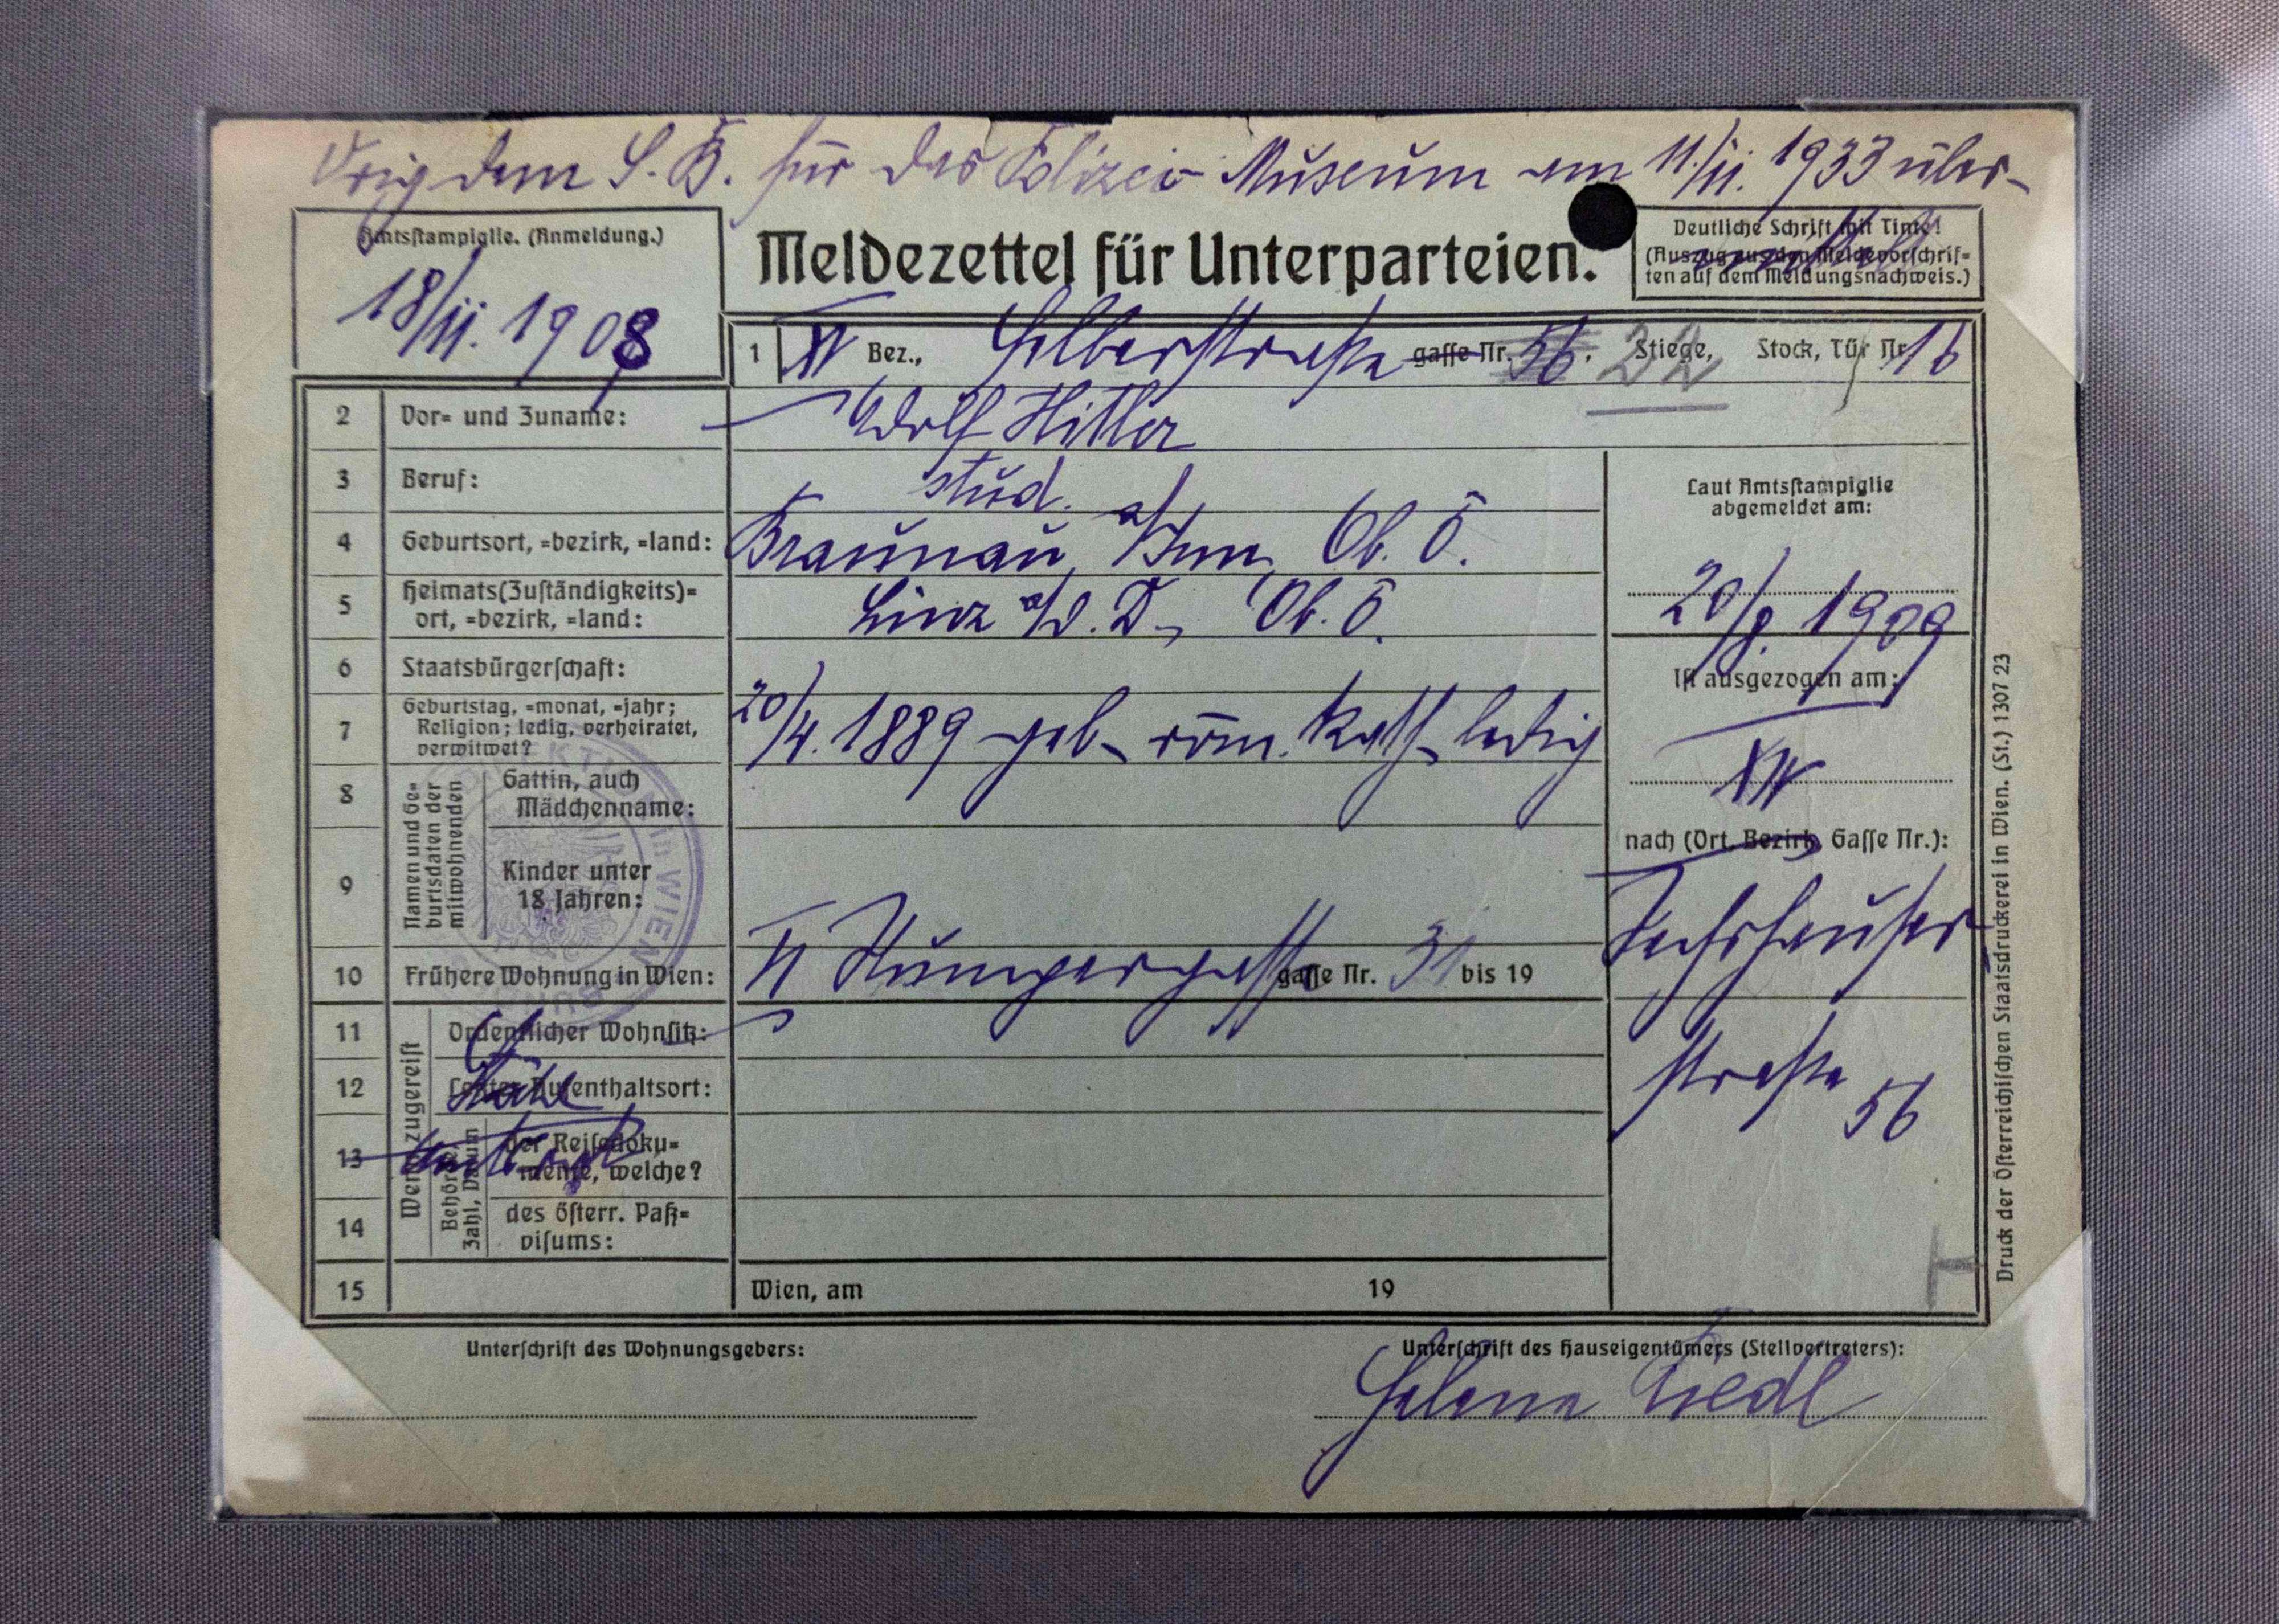 Orig dem S. B. für das Polizei-Museum am 11./11. 1933 über-
mittelt
Amtsstampiglie. (Anmeldung.)
18/11. 1908
Meldezettel für Unterparteien.
Deutliche Schrift mit Tinte!
(Auszug aus den Meldevorschrif=
ten auf dem Meldungsnachweis.)
1 XV Bez., Felberstraße gasse Nr. 22 Stiege, Stock, Tür Nr. 16
2 Vor= und Zuname: Adolf Hitler
3 Beruf: stud.
4 Geburtsort, =bezirk, =land: Braunau a/Inn, Ob. Ö.
5 Heimats(Zuständigkeits)=
ort, =bezirk, =land: Linz a/d. D., Ob. Ö.
6 Staatsbürgerschaft:
7 Geburtstag, =monat, =jahr;
Religion; ledig, verheiratet,
verwitwet? 20/4. 1889 geb. röm. kath. ledig
Namen und Ge=
burtsdaten der
mitwohnenden
8 Gattin, auch
Mädchenname:
9 Kinder unter
18 Jahren:
10 Frühere Wohnung in Wien: VI Stumpergasse gasse Nr. 31 bis 19
Wenn zugereist
11 Ordentlicher Wohnsitz:
12 Letzter Aufenthaltsort:
Behörde,
Zahl, Datum
13 der Reisedoku=
mente, welche?
14 des österr. Paß=
visums:
15 Wien, am 19
Laut Amtsstampiglie
abgemeldet am:
20/8. 1909
Ist ausgezogen am:
XIV
nach (Ort, Bezirk, Gasse Nr.):
Sechshauser
straße 56
Unterschrift des Wohnungsgebers:
Unterschrift des Hauseigentümers (Stellvertreters):
Helene Riedl
Druck der Österreichischen Staatsdruckerei in Wien. (St.) 1307 23
in WIEN